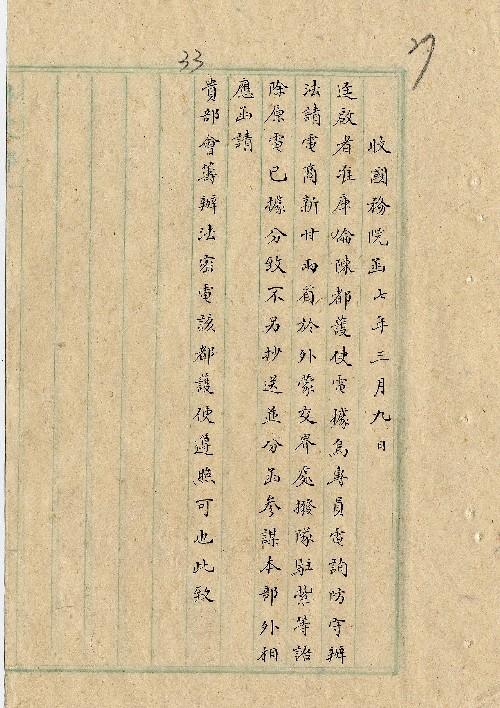 27
33
收國務院函七年三月九日
逕啟者准庫倫陳都護使電據烏專員電詢防守辦
法請電商新甘兩省於外蒙交界處撥隊駐紮等語
除原電已據分致不另抄送並分函參謀本部外相
應函請
貴部會籌辦法密電該都護使遵照可也此致